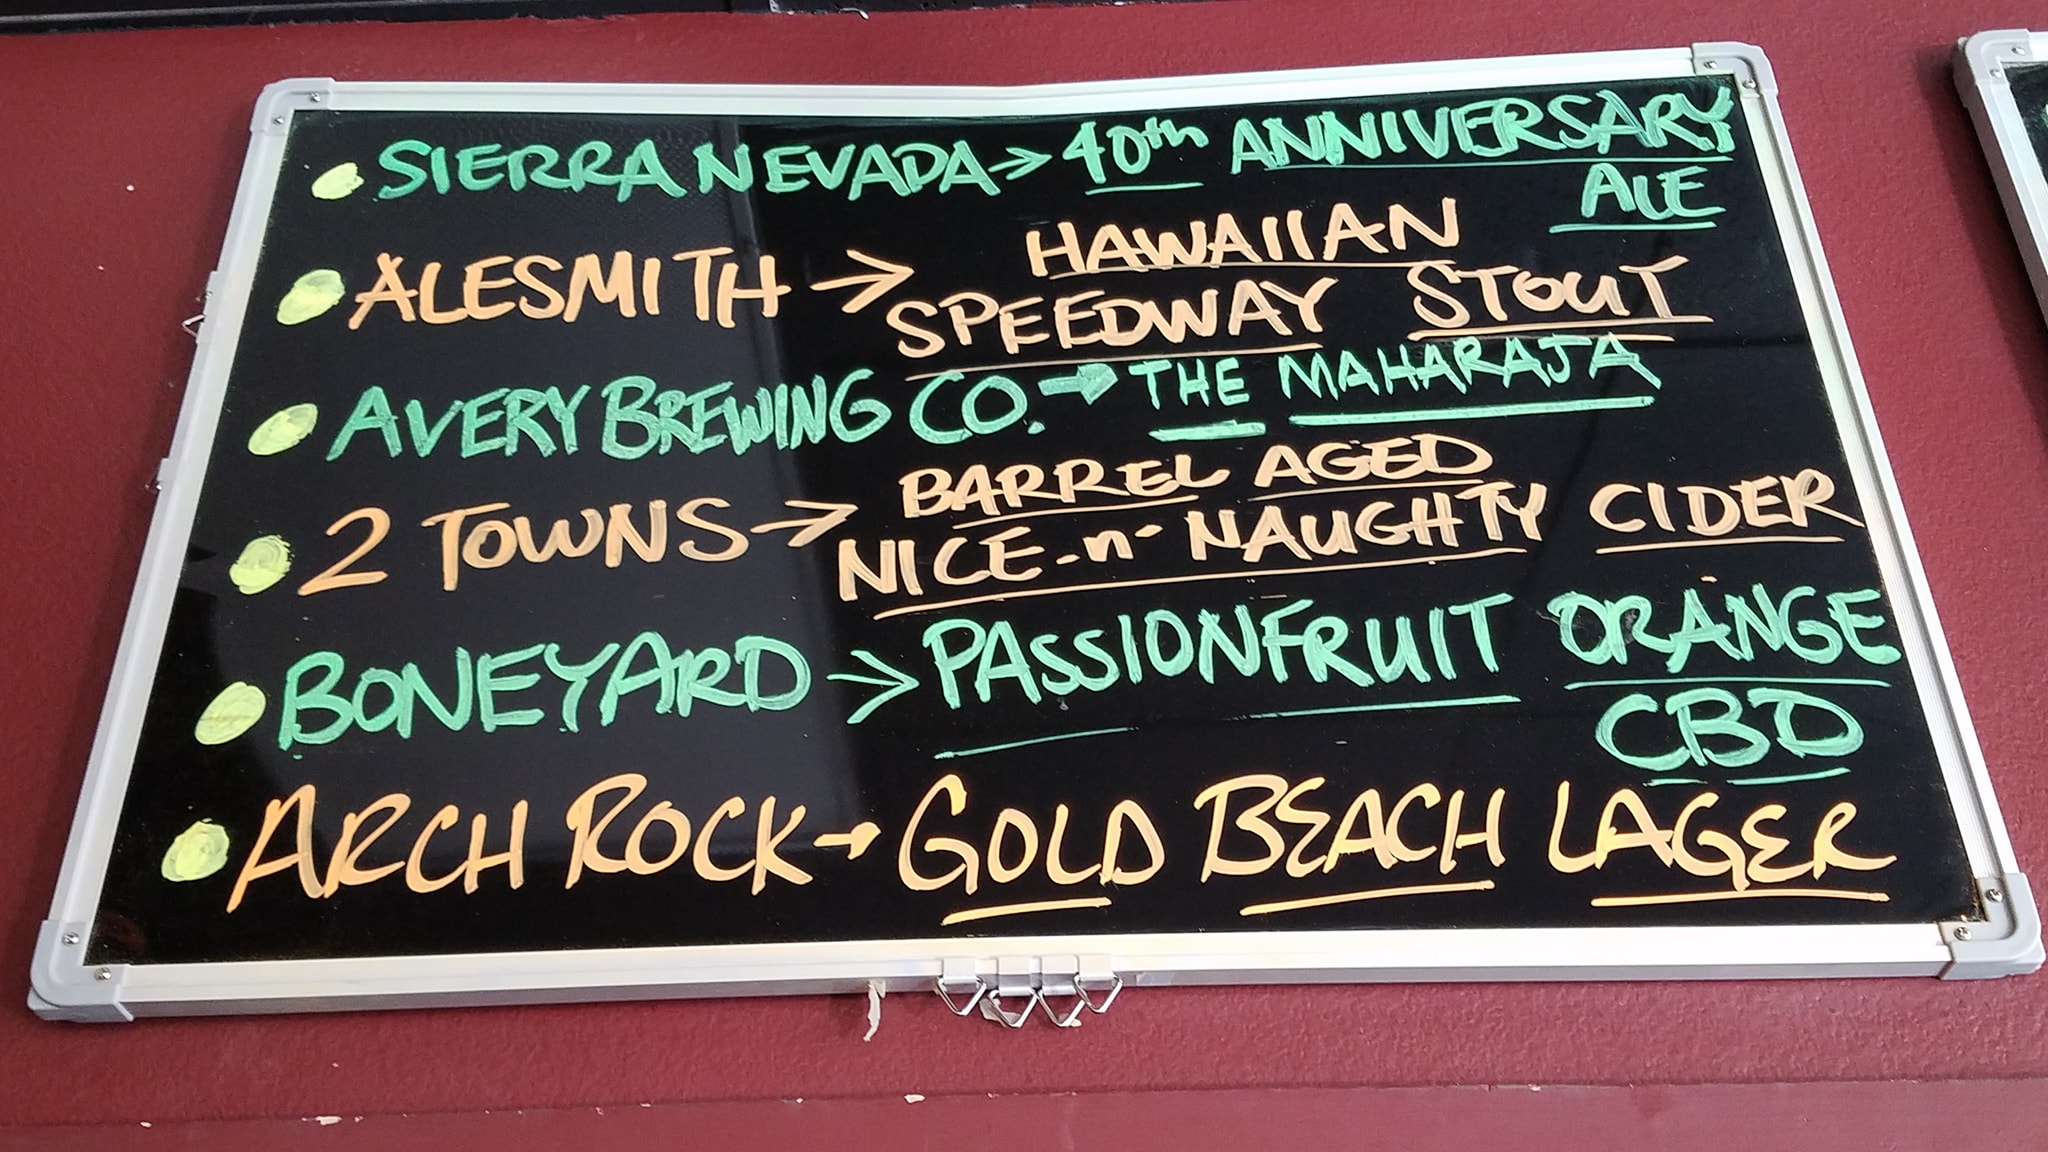 SIERRA NEVADA → 40th ANNIVERSARY
ALE
ALESMITH → HAWAIIAN
SPEEDWAY STOUT
AVERY BREWING CO. → THE MAHARAJA
2 TOWNS → BARREL AGED
NICE-n-NAUGHTY CIDER
BONEYARD → PASSIONFRUIT ORANGE
CBD
ARCH ROCK → GOLD BEACH LAGER